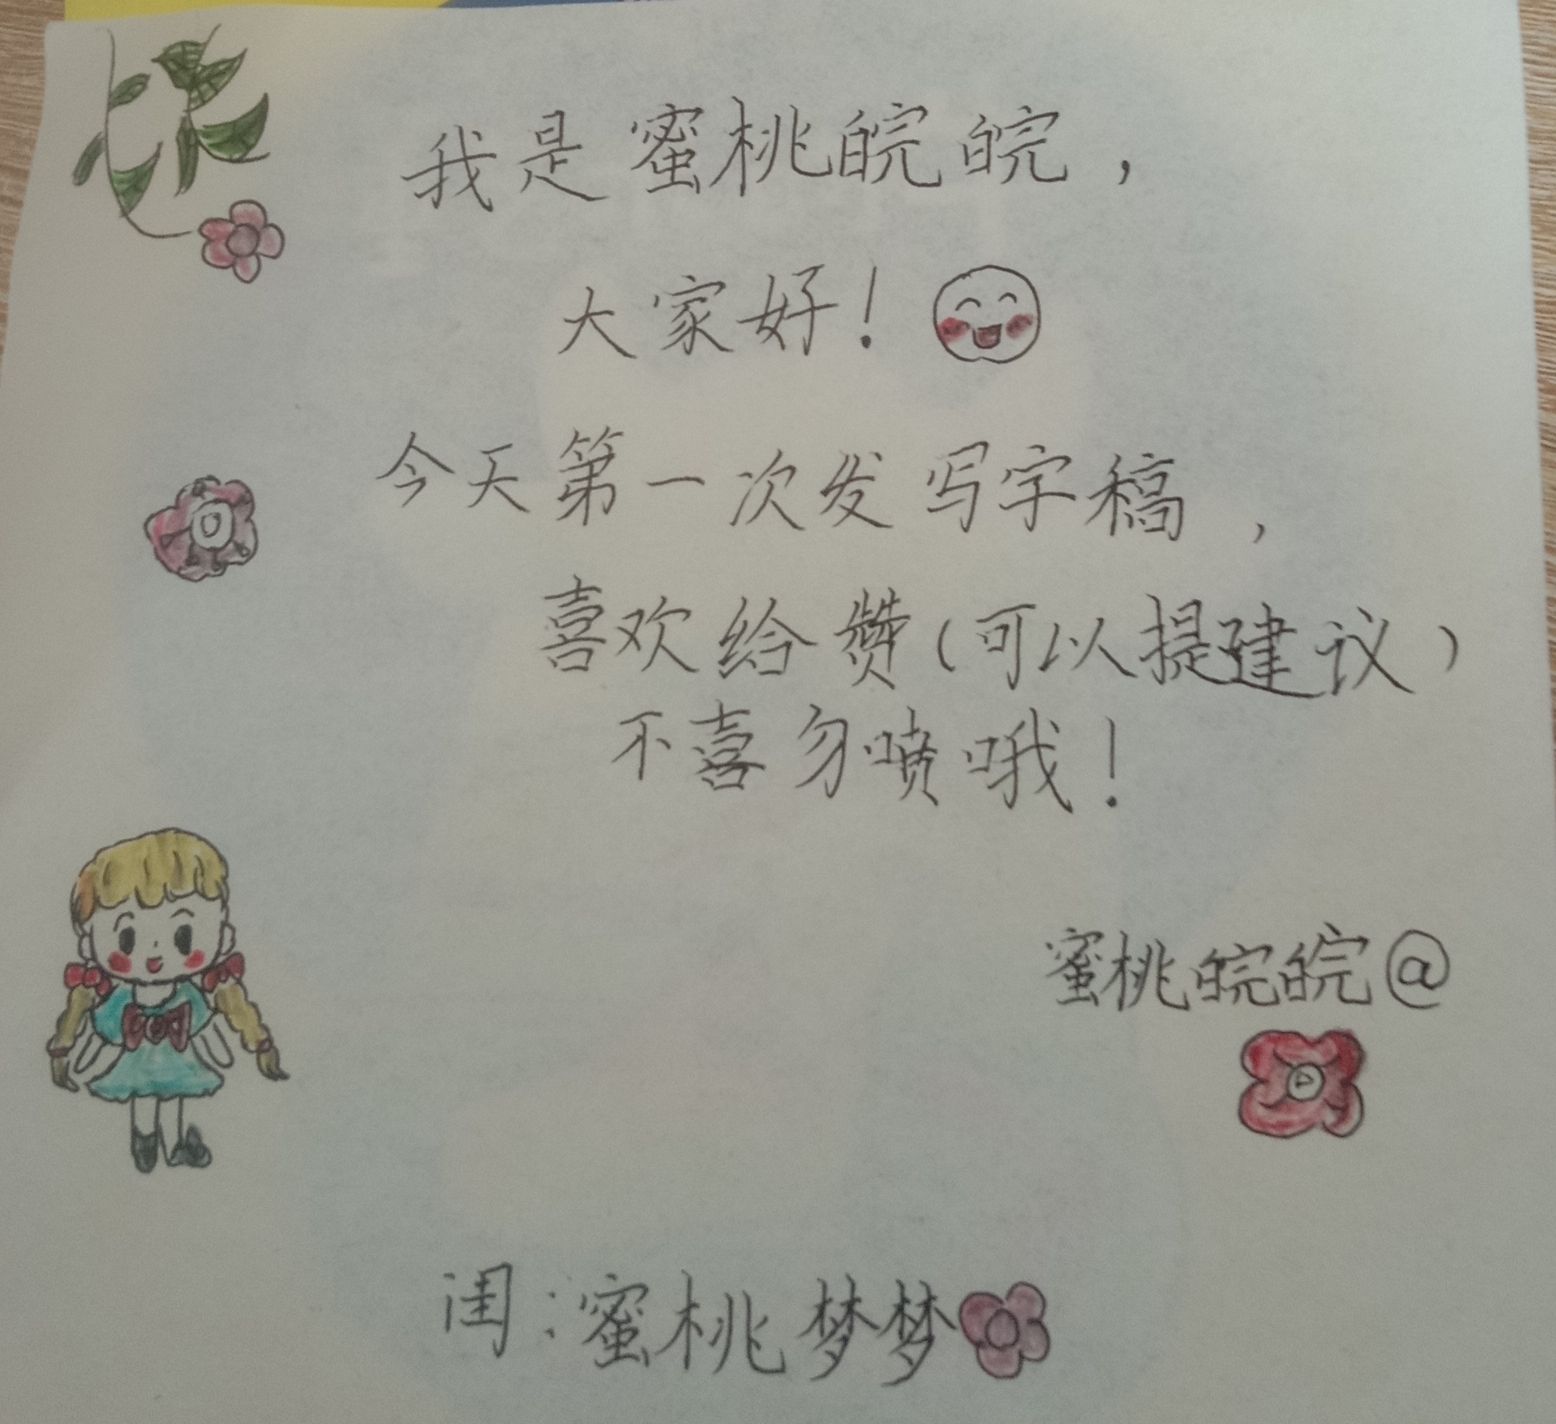 我是蜜桃皖皖，
大家好！
今天第一次发写字稿，
喜欢给赞（可以提建议）
不喜勿喷哦！
蜜桃皖皖@
闺：蜜桃梦梦